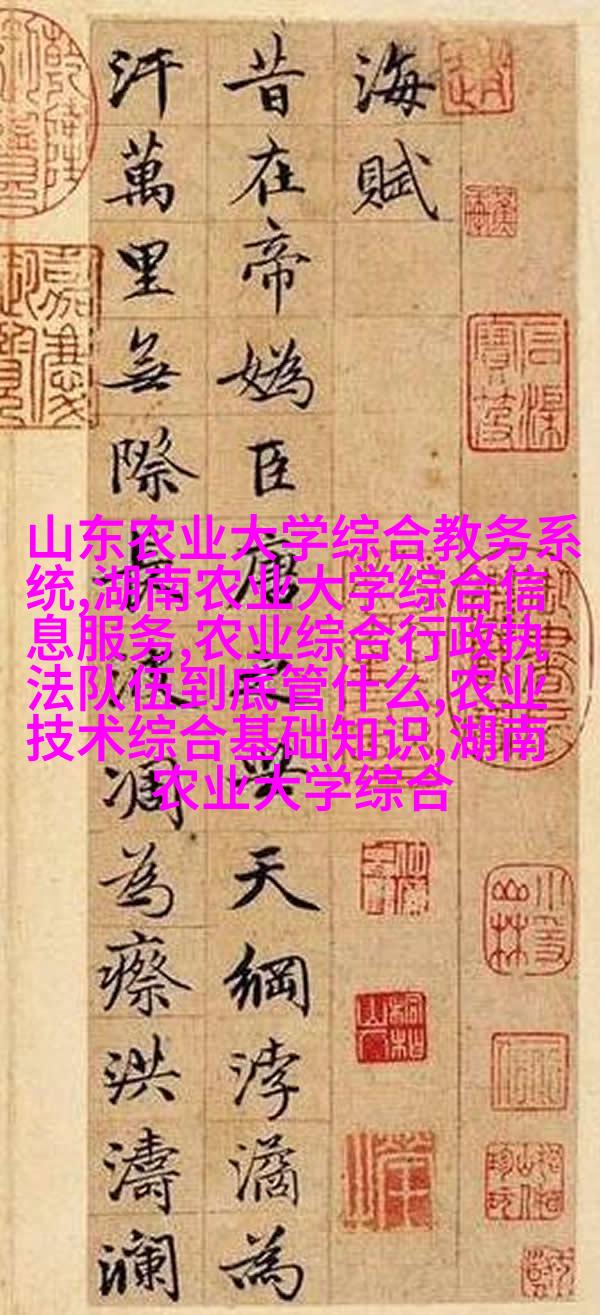 海賦
昔在帝媯臣唐之世天綱浡潏為
汗萬里無際長波凋為瘵洪濤瀾
山东农业大学综合教务系
统,湖南农业大学综合信
息服务,农业综合行政执
法队伍到底管什么,农业
技术综合基础知识,湖南
农业大学综合